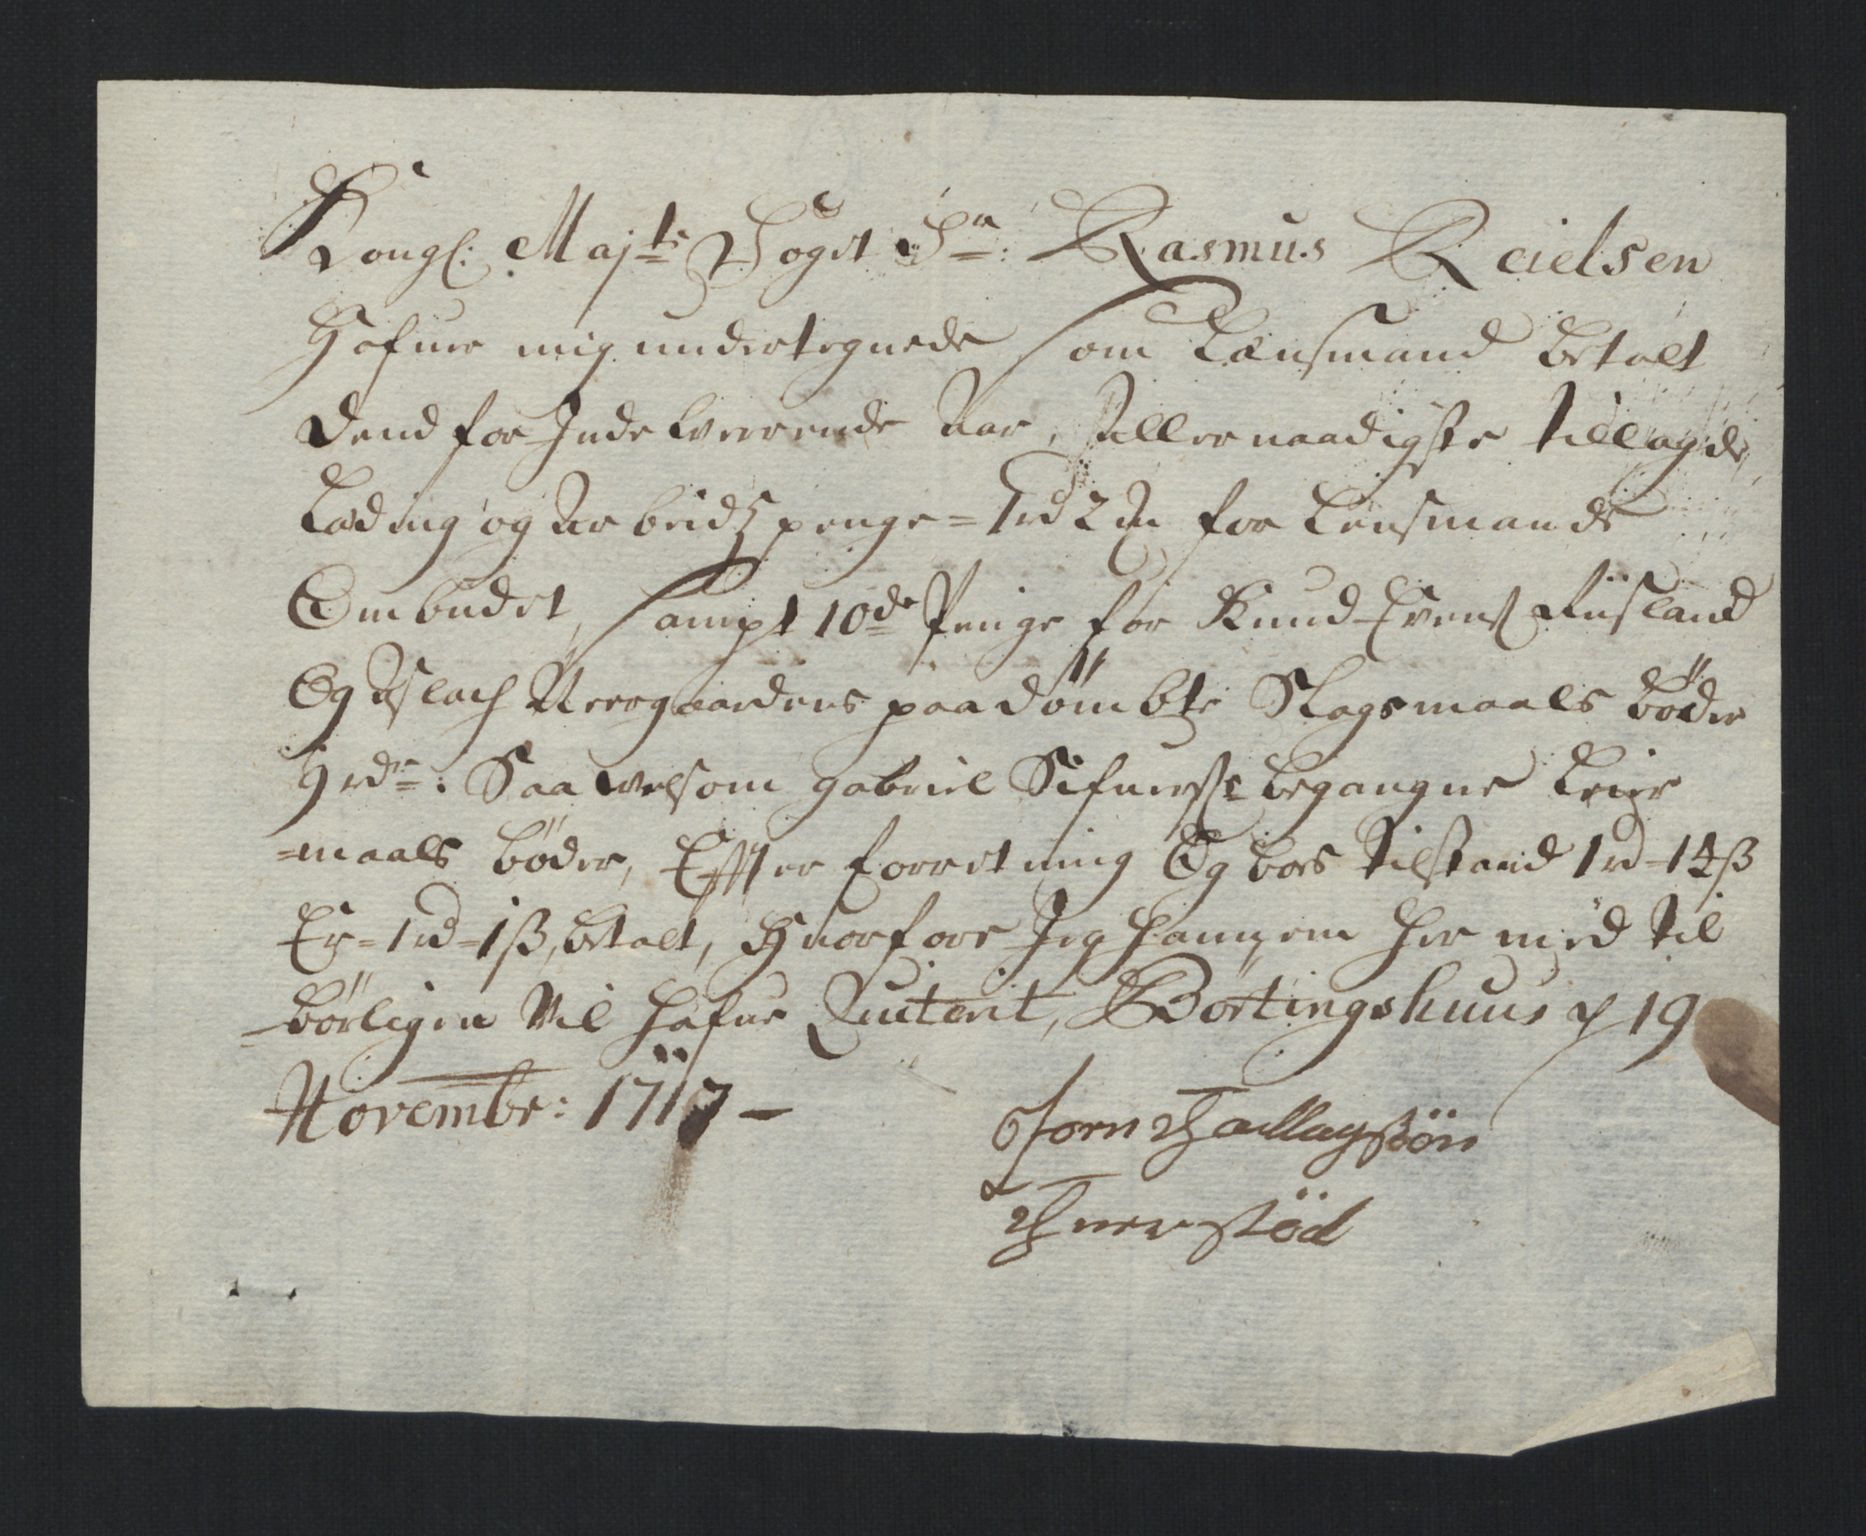 Kongl: Majts Foget Sr: Rasmus Reielsen
Hafuer mig undertegnede som Lænsmand betalt
dend for Indeværende Aar, Allernaadigste tillagde
Læding og Arbeidspenge = 1rd 2 for Lensmands
Ombudet, sampt 10de Penge for Knud Evens Riisland
Og Aslach paadömbte Slagsmaals böder
9 rdr: Saavelsom gabriel begangne Leier
=maals böder, Effter forretning Og boes tilstand 1rd - 14ß
Er = 1rd = 1ß, betalt, Huorfore Jeg hannem her med til
börligen Vil hafue Quiterit, Börtingshuus p 19
Novembr: 1717 -
Torn Tallagssön